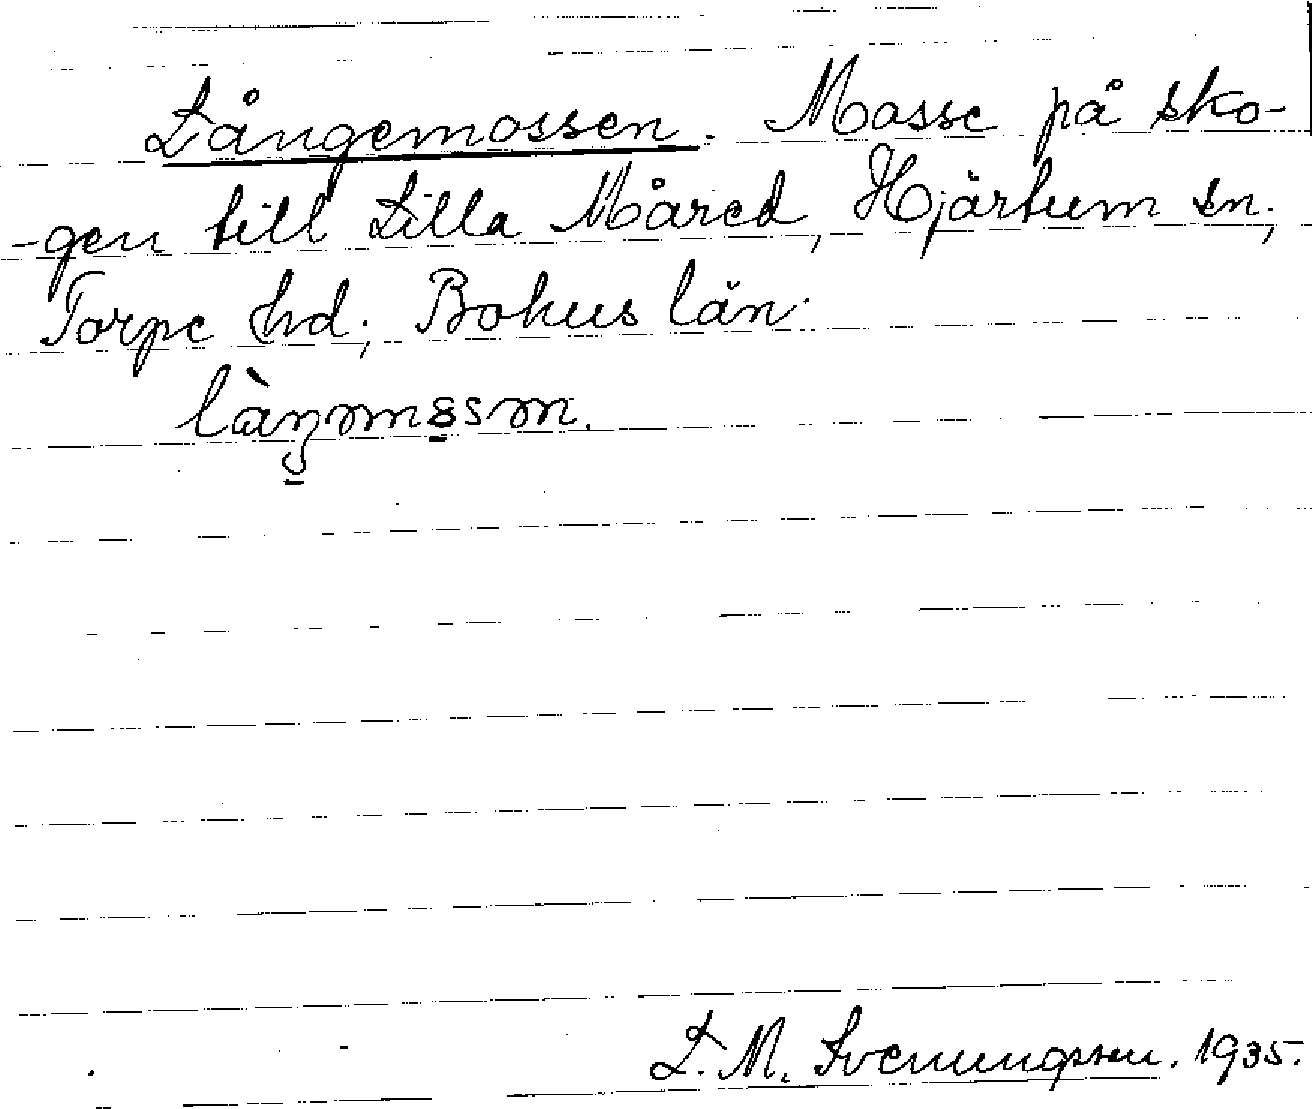 Långemossen. Mosse på sko-
-gen till Lilla Måred, Hjärtum sn.,
Torpe hd., Bohus län.
L. M. Svenungsson. 1935.